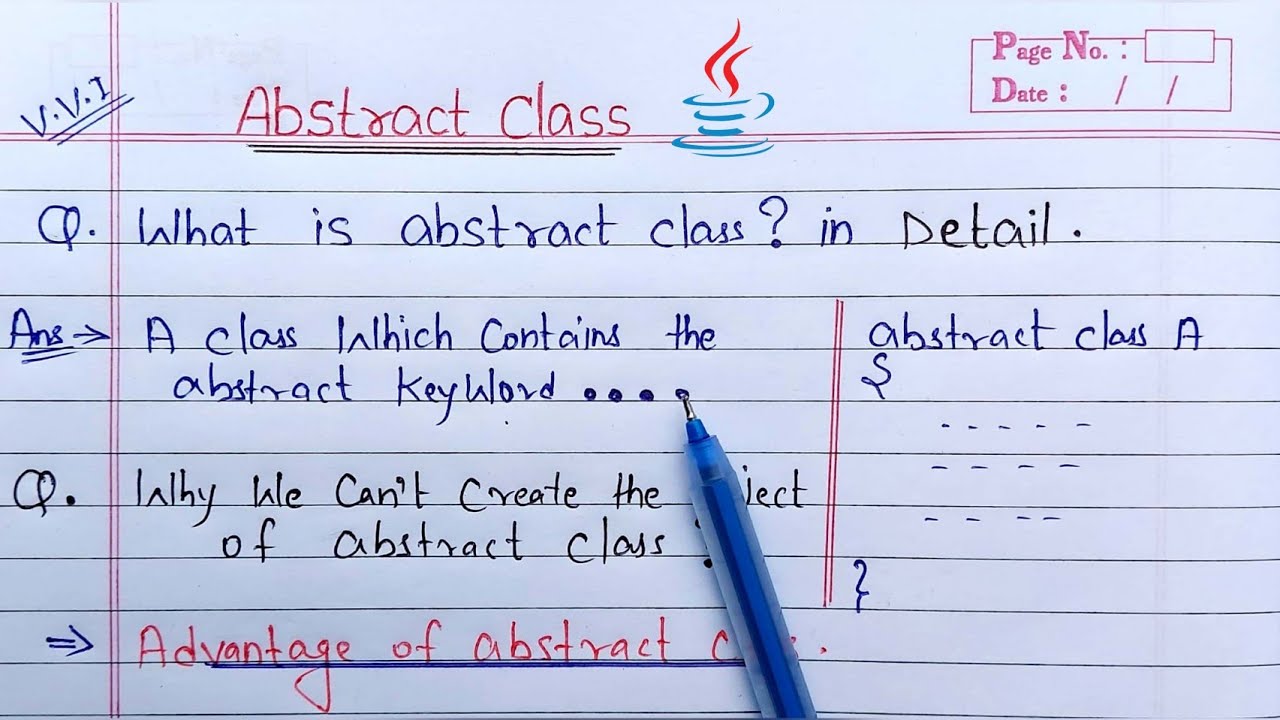 V.V.I
Abstract Class
Page No. :
Date : / /
Q. What is abstract class? in Detail.
Ans → A class Which Contains the
abstract KeyWord ....
abstract class A
{
- - - - -
- - - - -
- - - -
}
Q. Why We Can't Create the
of abstract class
⇒ Advantage of abstract